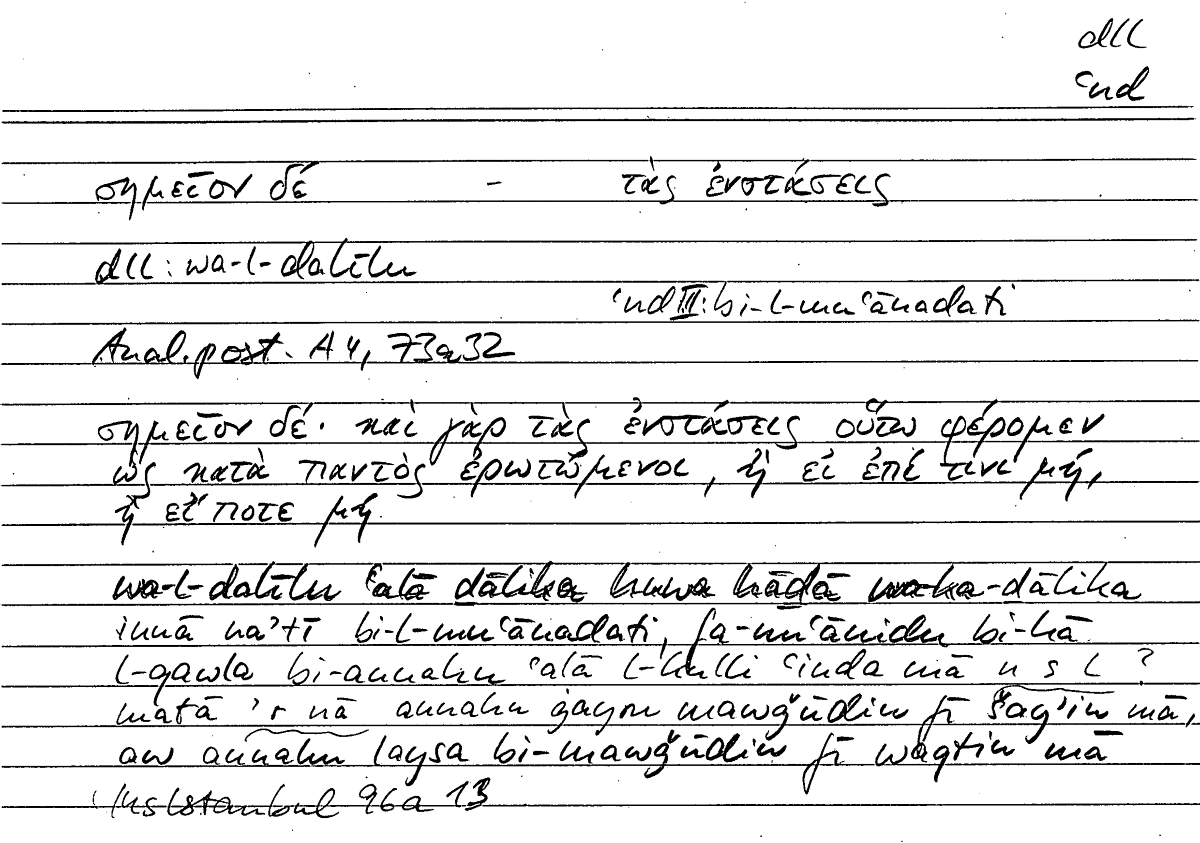 dll
ʿnd
σημεῖον δέ – τὰς ἐνστάσεις
dll: wa-l-dalīlu
ʿnd III: bi-l-muʿānadati
Anal. post. A 4, 73a32
σημεῖον δέ· καὶ γὰρ τὰς ἐνστάσεις οὕτω φέρομεν
ὡς κατὰ παντὸς ἐρωτώμενοι, ἢ εἰ ἐπί τινι μή,
ἢ εἴ ποτε μή.
wa-l-dalīlu ʿalā ḏālika huwa hāḏā wa-ka-ḏālika
innā naʾtī bi-l-muʿānadati, fa-nuʿānidu bi-hā
l-qawla bi-annahu ʿalā l-kulli ʿinda mā n s l ?
matā ʾ r nā annahu ġayru mawǧūdin fī šayʾin mā,
aw annahu laysa bi-mawǧūdin fī waqtin mā
Hs Istanbul 96a 13